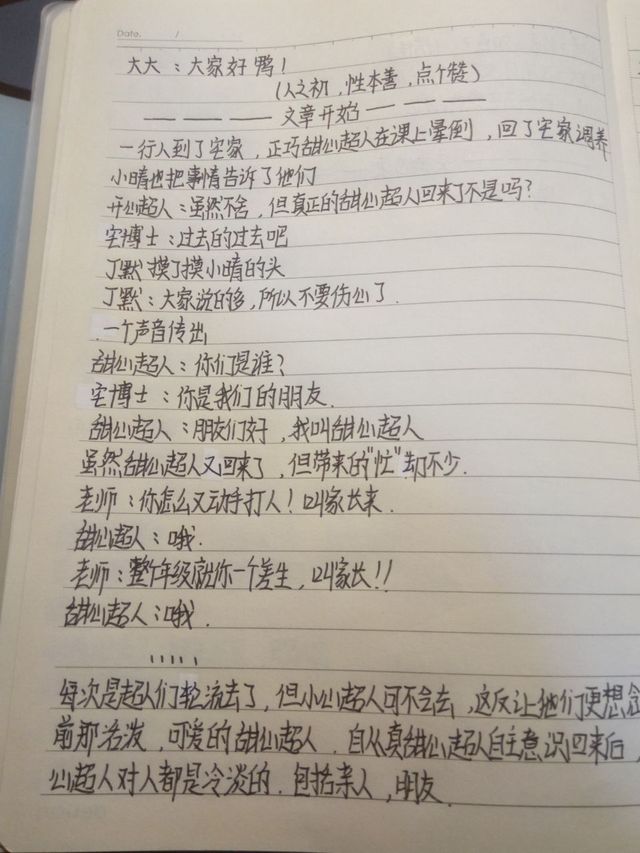 Date.      /
大大：大家好鸭！
(人之初，性本善，点个赞)
— — — 文章开始 — — —
一行人到了宅家，正巧甜心超人在课上晕倒，回了宅家调养
小晴也把事情告诉了他们
开心超人：虽然不舍，但真正的甜心超人回来了不是吗？
宅博士：过去的过去吧
丁默摸了摸小晴的头
丁默：大家说的够，所以不要伤心了.
一个声音传出
甜心超人：你们是谁？
宅博士：你是我们的朋友.
甜心超人：朋友们好，我叫甜心超人
虽然甜心超人又回来了，但带来的"忙"却不少.
老师：你怎么又动手打人！叫家长来.
甜心超人：哦.
老师：整个年级就你一个差生，叫家长！！
甜心超人：哦.
......
每次是超人们轮流去了，但小心超人可不会去，这反让他们更想念
前那活泼，可爱的甜心超人．自从真甜心超人自主意识回来后，
心超人对人都是冷淡的．包括亲人，朋友.